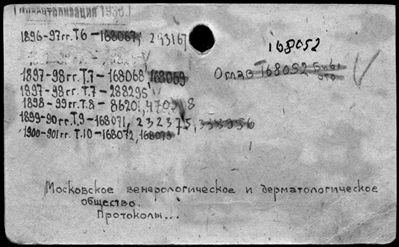 1896-97гг. Т.6 - 168067, 293167
168052
1897-98гг. Т.7 - 168068 168069
Оглав 168052
1897-98гг. Т.7 - 288295
1898-99гг. Т.8 -
1899-90гг. Т.9 - 168071, 232375,
1900-901гг. Т.10 - 168072, 168073
Московское венерологическое и дерматологическое
общество.
Протоколы...